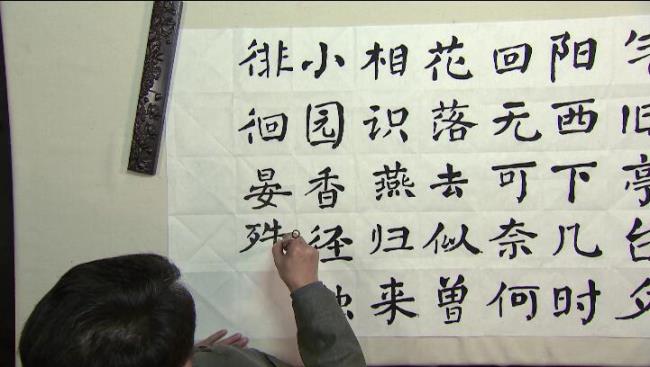 气旧亭台夕
阳西下几时
回无可奈何
花落去似曾
相识燕归来
小园香径独
徘徊晏殊